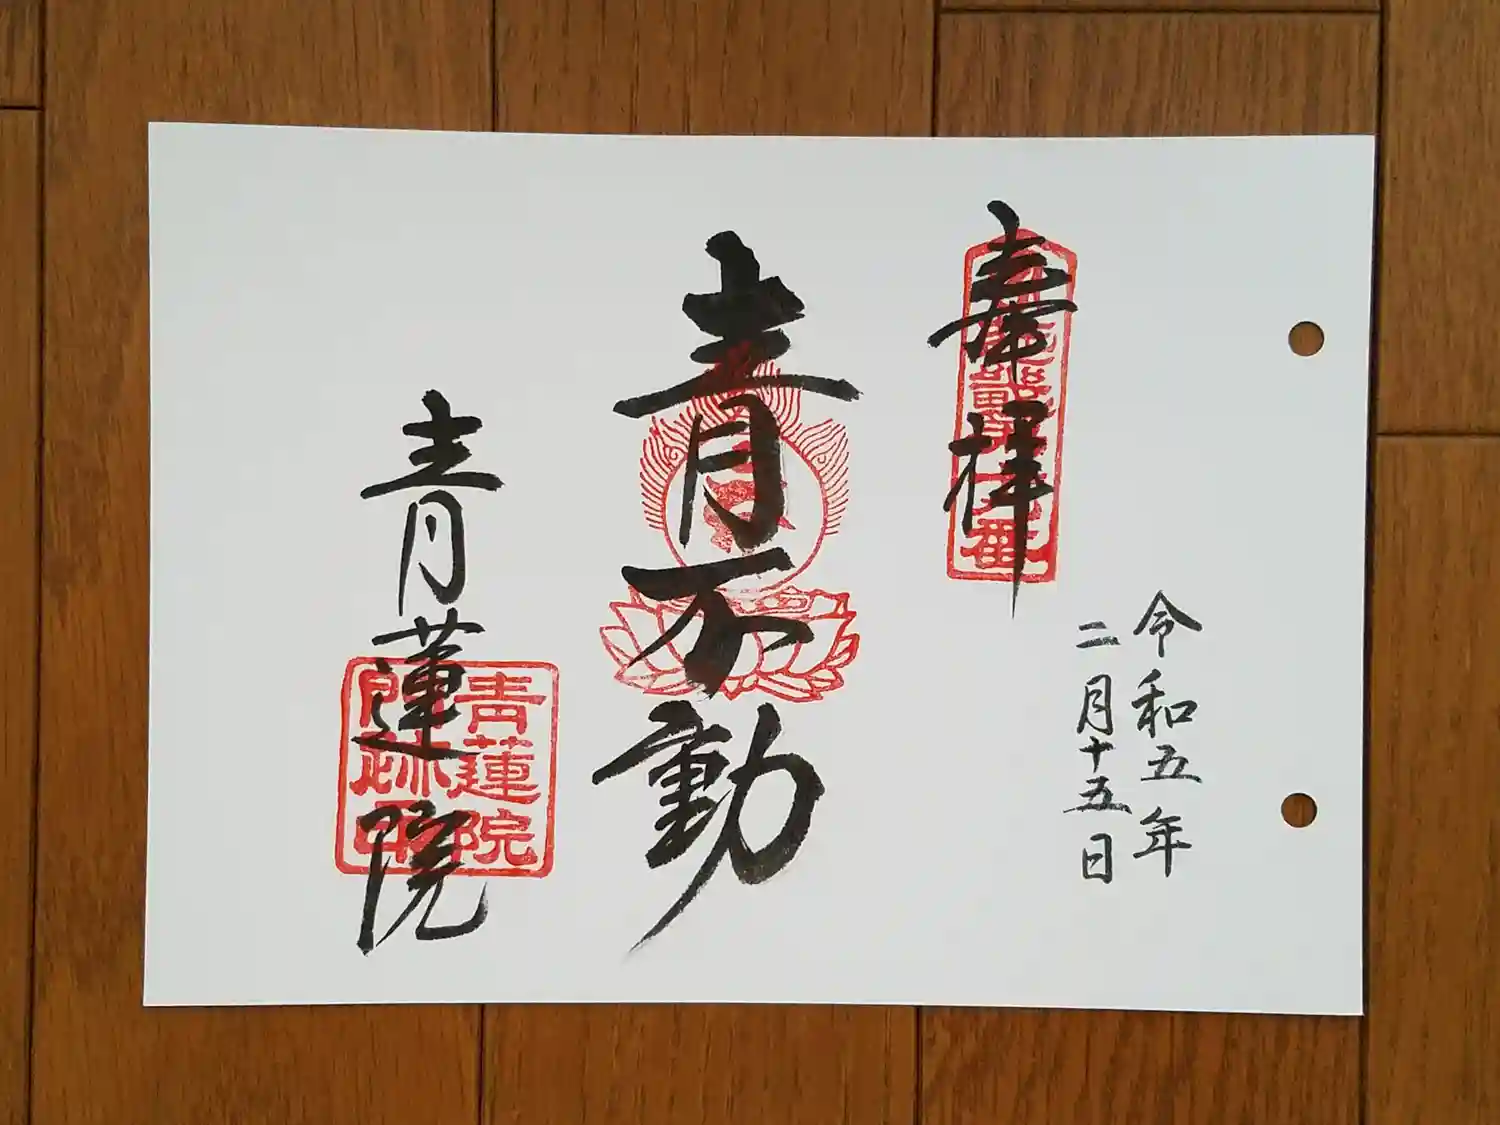 奉拝
令和五年
二月十五日
青不動
青蓮院
青蓮院
門跡印